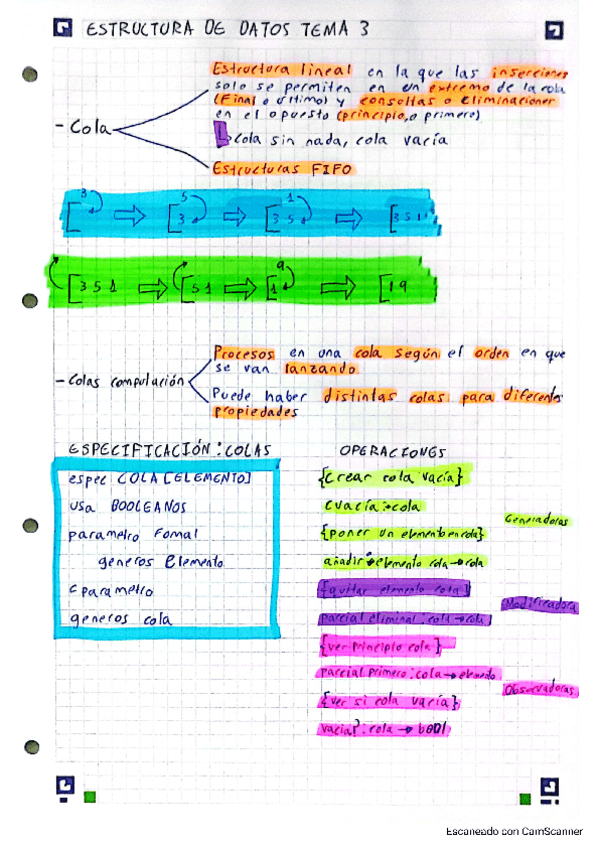 ESTRUCTURA DE DATOS TEMA 3
Estructura lineal en la que las inserciones
solo se permiten en un extremo de la cola
(Final o último) y consultas o Eliminaciones
en el opuesto (principio, o primero)
- Cola
Cola sin nada, cola vacía
Estructuras FIFO
3 5 1
[ ⇒ [3 ⇒ [3 5 ⇒ [3 5 1
9
[3 5 1 ⇒ [5 1 ⇒ [1 ⇒ [1 9
Procesos en una cola según el orden en que
se van lanzando
- Colas computación
Puede haber distintas colas para diferentes
propiedades
ESPECIFICACIÓN: COLAS
espec COLA [ELEMENTO]
usa BOOLEANOS
parametro Fomal
generos Elemento
fparametro
generos cola
OPERACIONES
{Crear cola vacía}
cvacía: → cola
{poner un elemento en cola}
Generadoras
añadir: elemento cola → cola
{quitar elemento cola}
Modificadora
parcial eliminar: cola → cola
{ver principio cola}
parcial primero: cola → elemento
Observadoras
{ver si cola vacía}
vacia?: cola → bool
Escaneado con CamScanner